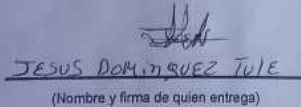 JESUS DOMINGUEZ TULE
(Nombre y firma de quien entrega)